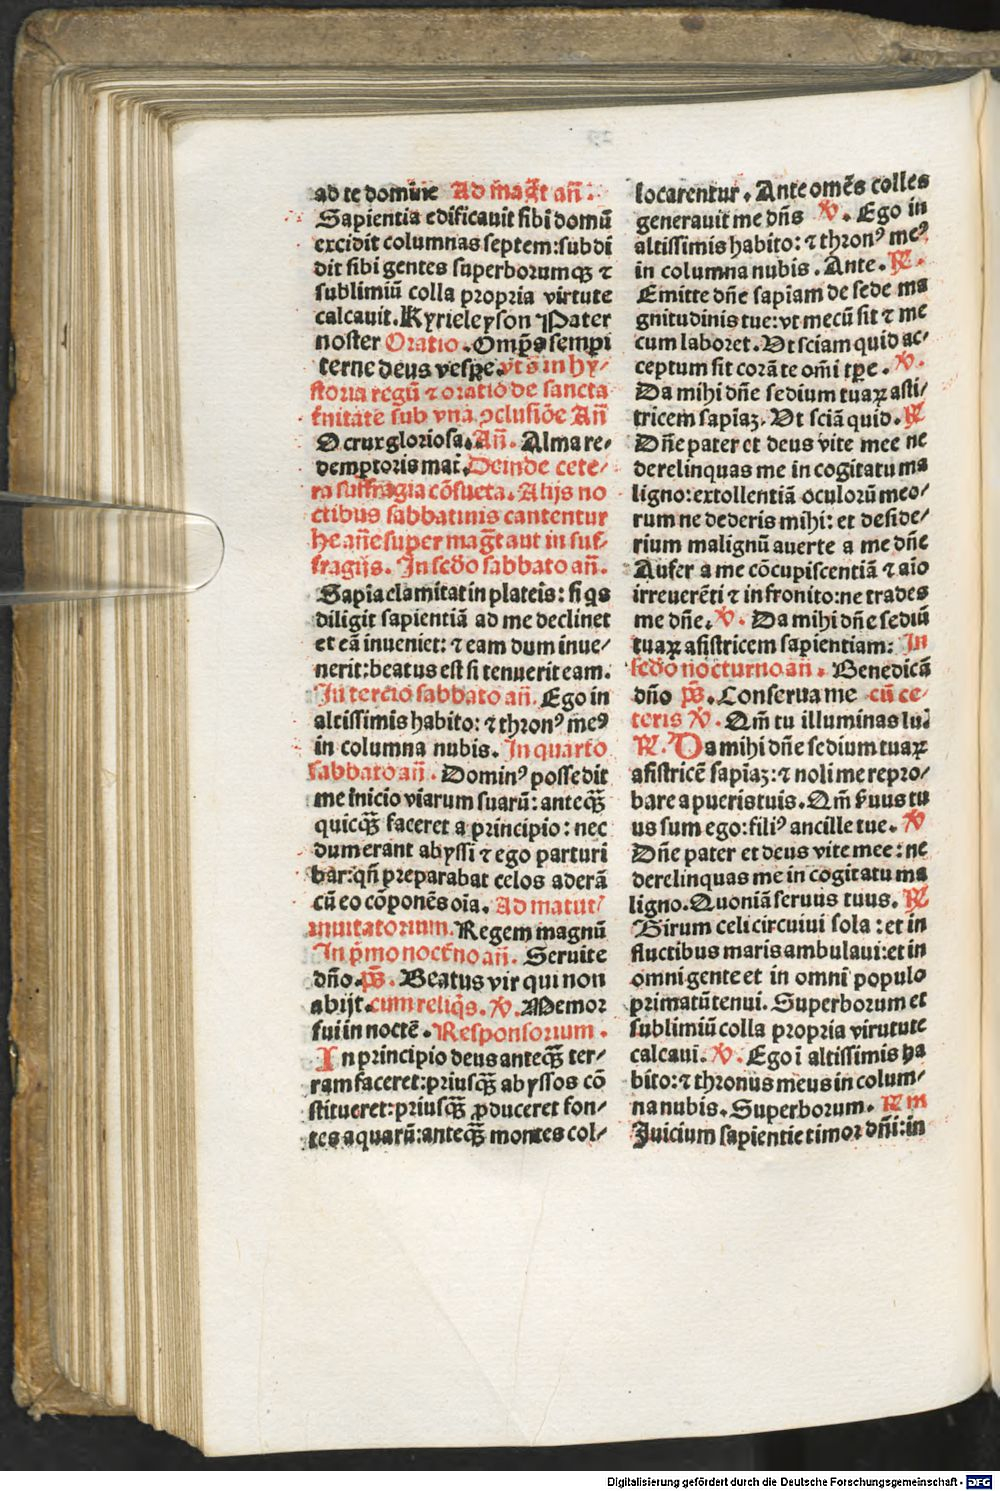 ad te domine Ad mag̃t an̄.
Sapientia edificauit sibi domū
excidit columnas septem:subdi
dit sibi gentes superborumqꝫ ⁊
sublimiū colla propria virtute
calcauit.Kyrieleyson Pater
noster Oratio.Omp̄s sempi
terne deus vespe.vt s in hy-
storia regū ⁊ oratio de sancta
t̄nitate sub vna ꝯclusiōe An̄
O crux gloriosa.An̄. Alma re-
demptoris mat̄.Deinde cete-
ra suffragia cōsueta.Alijs no
ctibus sabbatinis cantentur
he an̄e super mag̃t aut in suf-
fragijs. In sc̄do sabbato an̄.
Sapīa clamitat in plateis: si qs
diligit sapientiā ad me declinet
et eā inueniet: ⁊ eam dum inue-
nerit:beatus est si tenuerit eam.
In tercio sabbato an̄. Ego in
altissimis habito: ⁊ thronꝰ meꝰ
in columna nubis. In quarto
sabbato an̄. Dominꝰ possedit
me inicio viarum suarū: anteqꝗ̄
quicqꝗ̄ faceret a principio: nec
dum erant abyssi ⁊ ego parturi
bar:qn̄ preparabat celos aderā
cū eo cōponēs oīa. Ad matut-
inuitatorium. Regem magnū
In p̄mo noct̄no an̄. Seruite
dn̄o.ps̄. Beatus vir qui non
abijt.cum reliqs. ℣. Memor
fui in noctē. Responsorium.
In principio deus anteqꝗ̄ ter-
ram faceret:priusqꝗ̄ abyssos cō
stitueret:priusqꝗ̄ ꝓduceret fon-
tes aquarū:anteqꝗ̄ montes col-
locarentur. Ante omēs colles
generauit me dn̄s ℣. Ego in
altissimis habito: ⁊ thronꝰ meꝰ
in columna nubis. Ante. ℟.
Emitte dn̄e sapīam de sede ma
gnitudinis tue:vt mecū sit ⁊ me
cum laboret. Vt sciam quid ac-
ceptum sit corā te om̄i tpe. ℣.
Da mihi dn̄e sedium tuaꝝ asti-
tricem sapīaꝫ. Vt sciā quid. ℟
Dn̄e pater et deus vite mee ne
derelinquas me in cogitatu ma
ligno:extollentiā oculorū meo-
rum ne dederis mihi: et deside-
rium malignū auerte a me dn̄e
Aufer a me cōcupiscentiā ⁊ aīo
irreuerēti ⁊ infronito:ne trades
me dn̄e. ℣. Da mihi dn̄e sediū
tuaꝝ asistricem sapientiam: In
sc̄do nocturno an̄. Benedicā
dn̄o ps̄. Conserua me cū ce-
teris ℣. Qm̄ tu illuminas lu.
℟. Da mihi dn̄e sedium tuaꝝ
asistricē sapīaꝫ: ⁊ noli me repro-
bare a pueris tuis. Qm̄ s̄uus tu
us sum ego: filiꝰ ancille tue. ℣
Dn̄e pater et deus vite mee: ne
derelinquas me in cogitatu ma
ligno.Quoniā seruus tuus. ℟
Birum celi circuiui sola: et in
fluctibus maris ambulaui:et in
omni gente et in omni populo
primatū tenui. Superborum et
sublimiū colla propria virutute
calcaui. ℣. Ego ī altissimis ha
bito: ⁊ thronus meus in colum-
na nubis. Superborum. ℟ m
Juicium sapientie timor dn̄i:in
Digitalisierung gefördert durch die Deutsche Forschungsgemeinschaft - DFG